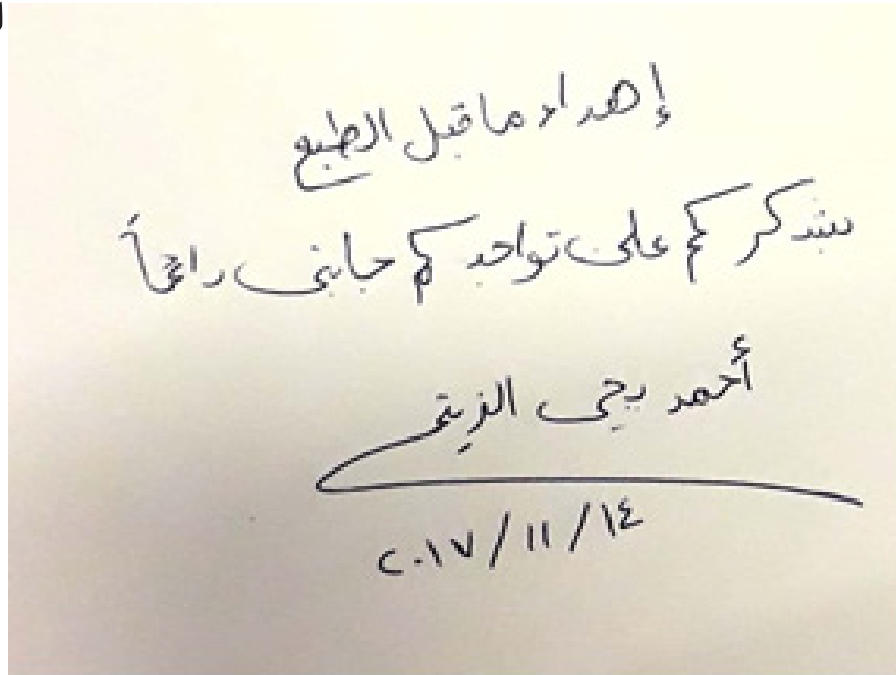 إهداء ما قبل الطبع
بشكركم على تواجدكم جانبى دائماً
أحمد يحى الزيتى
٢٠١٧/١١/١٤